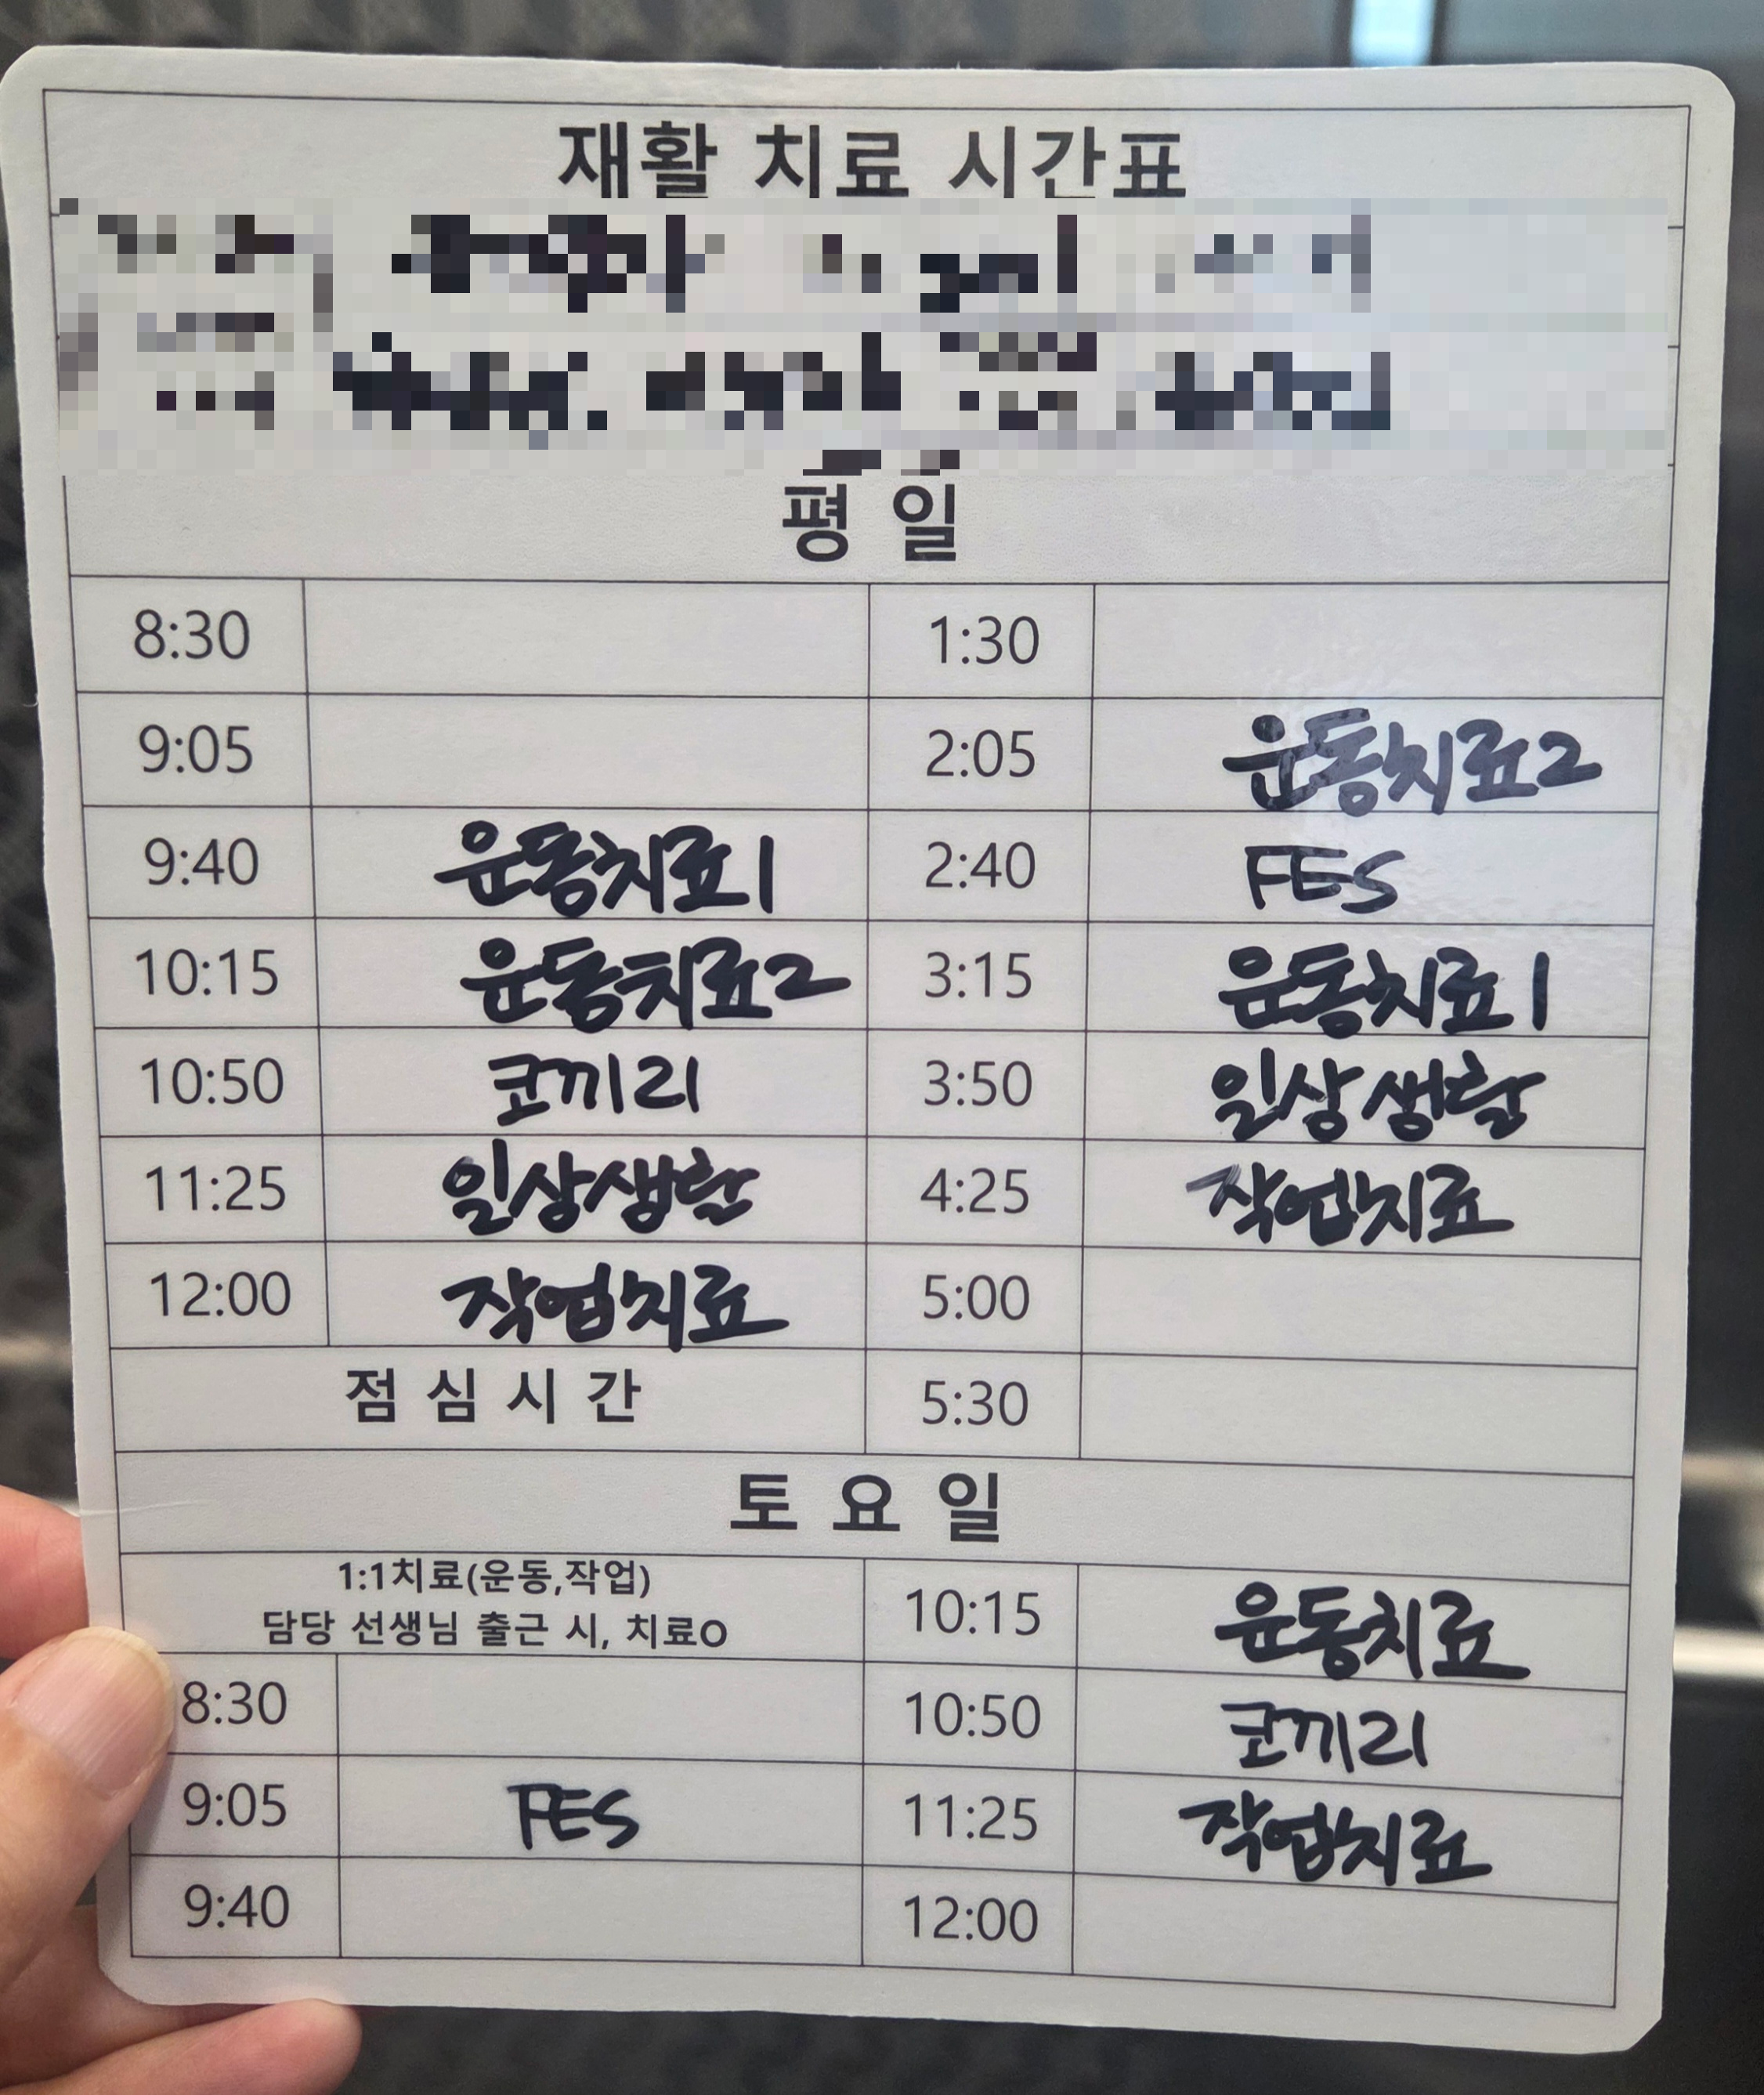 재활 치료 시간표
평 일
8:30 1:30
9:05 2:05 운동치료2
9:40 운동치료1 2:40 FES
10:15 운동치료2 3:15 운동치료1
10:50 코끼리 3:50 일상생활
11:25 일상생활 4:25 작업치료
12:00 작업치료 5:00
점 심 시 간 5:30
토 요 일
1:1치료(운동,작업)
담당 선생님 출근 시, 치료O
10:15 운동치료
8:30 10:50 코끼리
9:05 FES 11:25 작업치료
9:40 12:00